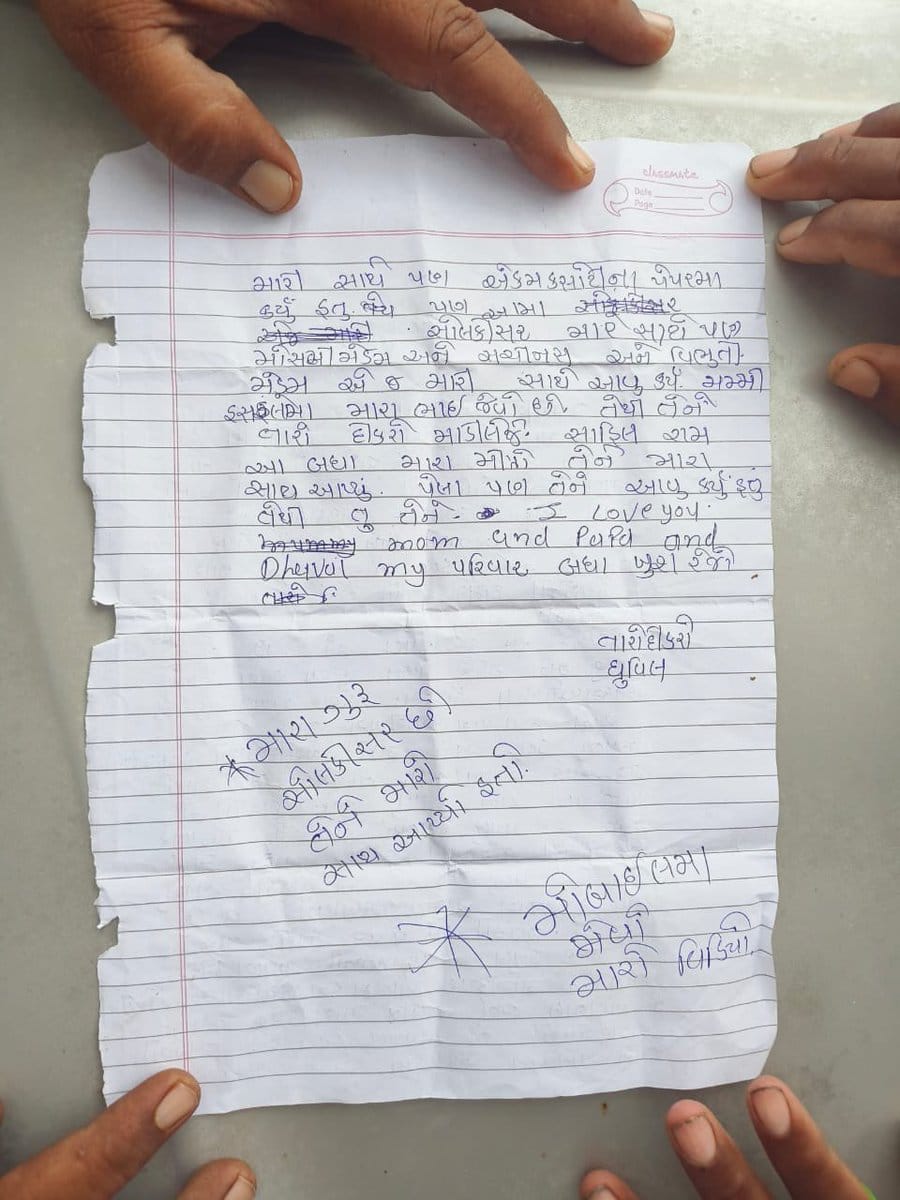 classmate
Date
Page
મારી સાથે પણ એકમ કસોટીના પેપરમા
કર્યું હતુ. પણ આમા
સોલંકીસર મારે સાથે પણ
મોસમી મેડમ અને સચીનસર અને વિભુતી
મેડમ એ જ મારી સાથે આવુ કર્યું. મમ્મી
મારા ભાઈ જેવો છે. તેથી તેને
તારો દીકરો માની લેજે. સાહિલ રામ
આ બધા મારા મીત્રો તેને મારા
સાથ આપ્યું. પેલા પણ તેને આવુ કર્યું હતું
તેથી તુ તેને. I Love you.
mom and Papa and
Dhruval my પરિવાર બધા ખુશ રેજો
તારો દીકરો
ધ્રુવિલ
મારા ગુરૂ
સોલંકી સર છે
તેને મારો
સાથ આપ્યો હતો.
મોબાઈલમા
મેધો
મારો વિડિયો.